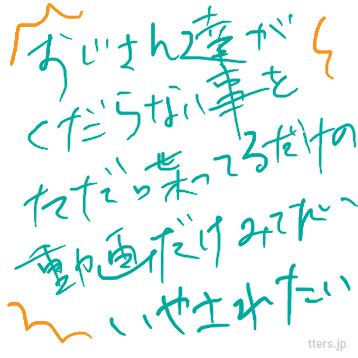 おじさん達が
くだらない事を
ただ喋ってるだけの
動画だけみてたい
いやされたい
tters.jp